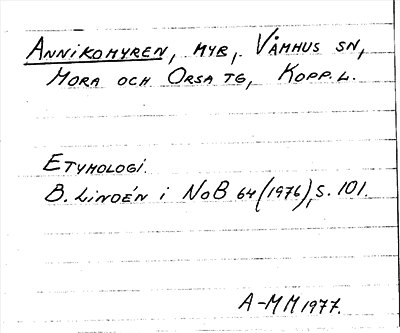 ANNIKOMYREN, MYB, VÅMHUS SN,
MORA OCH ORSA TG, KOPP. L.
ETYMOLOGI.
B. LINDÉN i NoB 64 (1976), S. 101.
A-MM 1977.